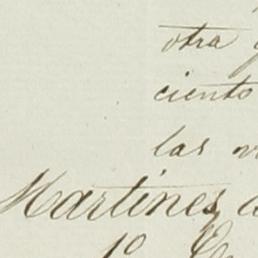 otra
ciento
las
Martinez
1º